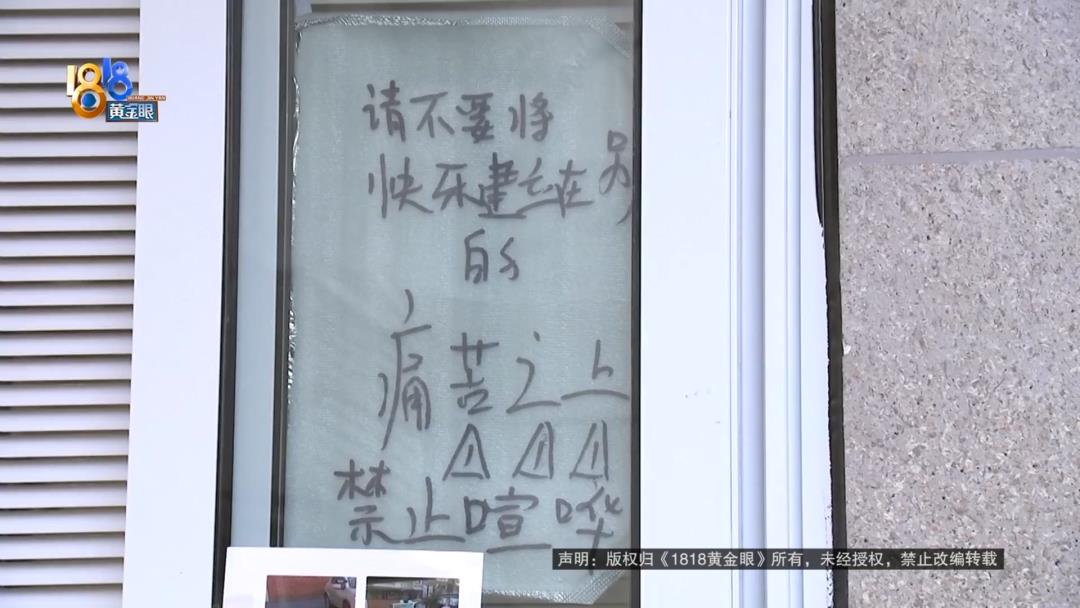 1818
HUANG JIN YAN
黄金眼
请不要将
快乐建立在别
的
痛苦之上
禁止喧哗
声明：版权归《1818黄金眼》所有，未经授权，禁止改编转载